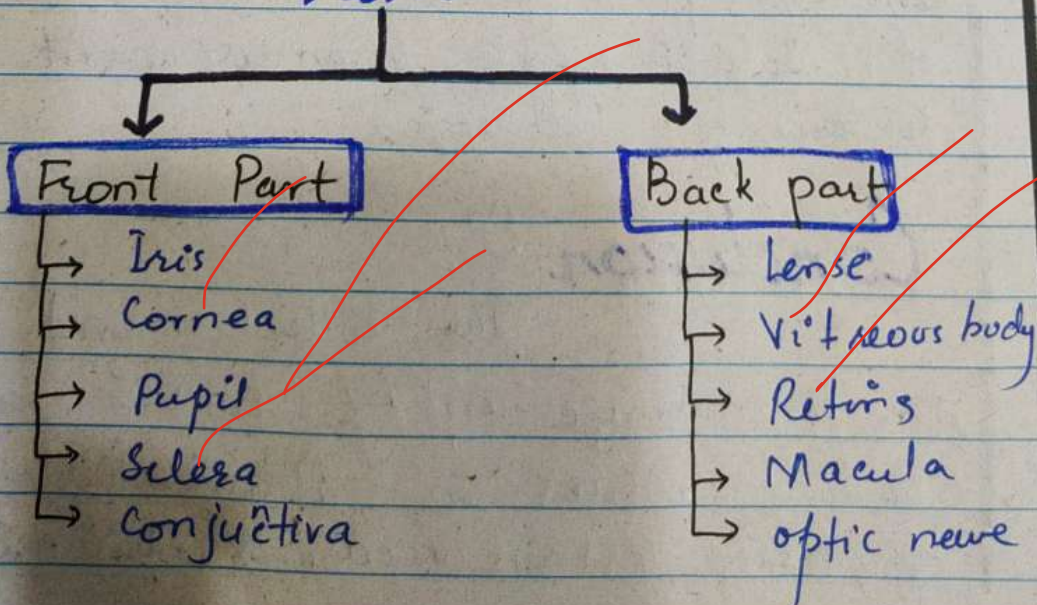 Front Part
Iris
Cornea
Pupil
Sclera
Conjuctiva
Back part
Lense
Vitreous body
Retins
Macula
optic nerve